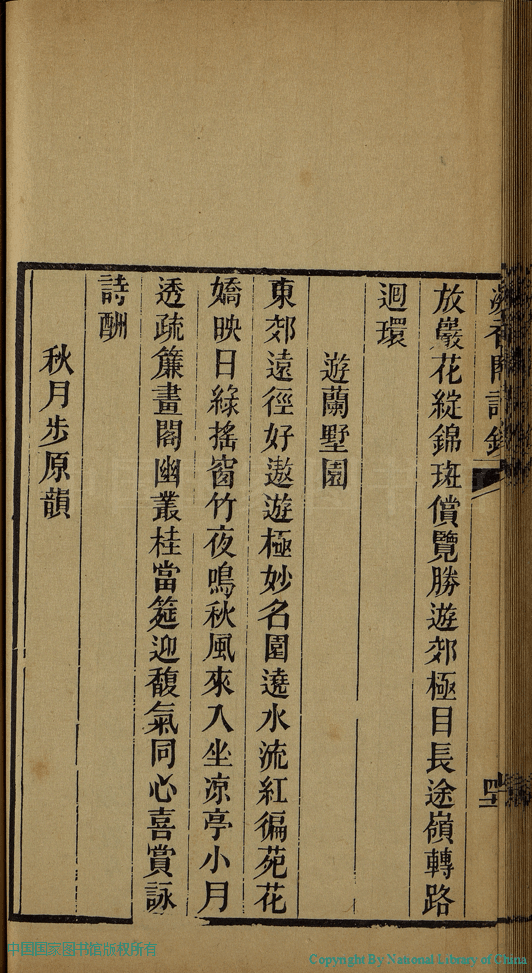 放巖花綻錦斑償覽勝遊郊極目長途嶺轉路
迴環
遊蘭墅園
東郊遠徑好遨遊極妙名園遶水流紅徧苑花
嬌映日綠搖窗竹夜鳴秋風來入坐凉亭小月
透疏簾畫閣幽叢桂當筵迎馥氣同心喜賞詠
詩酬
秋月步原韻
中国国家图书馆版权所有
Copyright By National Library of China